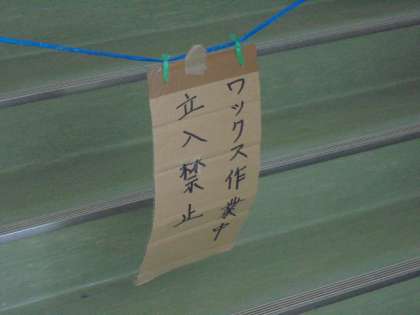 ワックス作業中
立入禁止